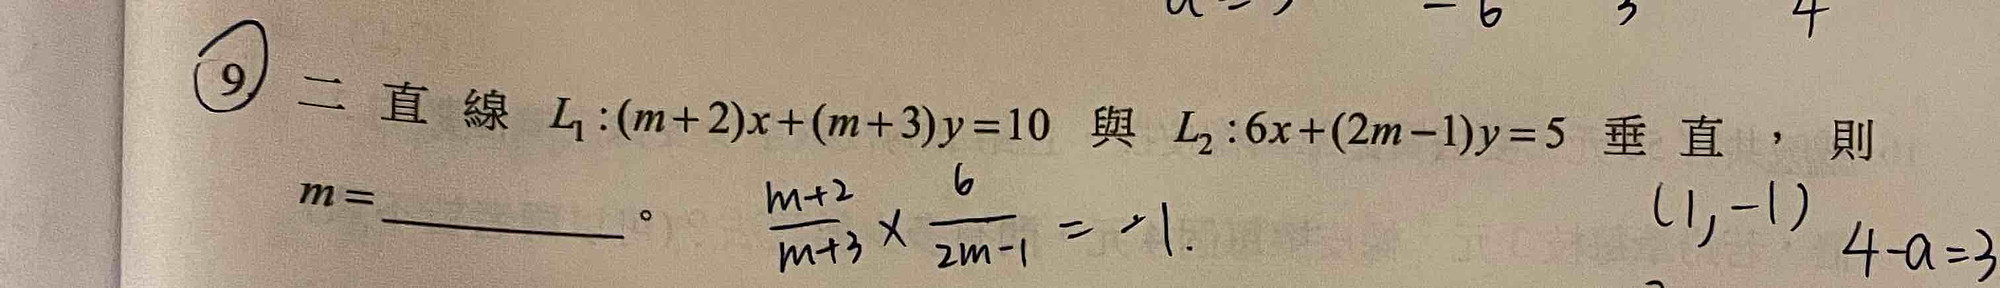 9 二直線 L₁:(m+2)x+(m+3)y=10 與 L₂:6x+(2m−1)y=5 垂直,則
m=________。 (m+2)/(m+3) × 6/(2m-1) = -1. (1,-1) 4-a=3